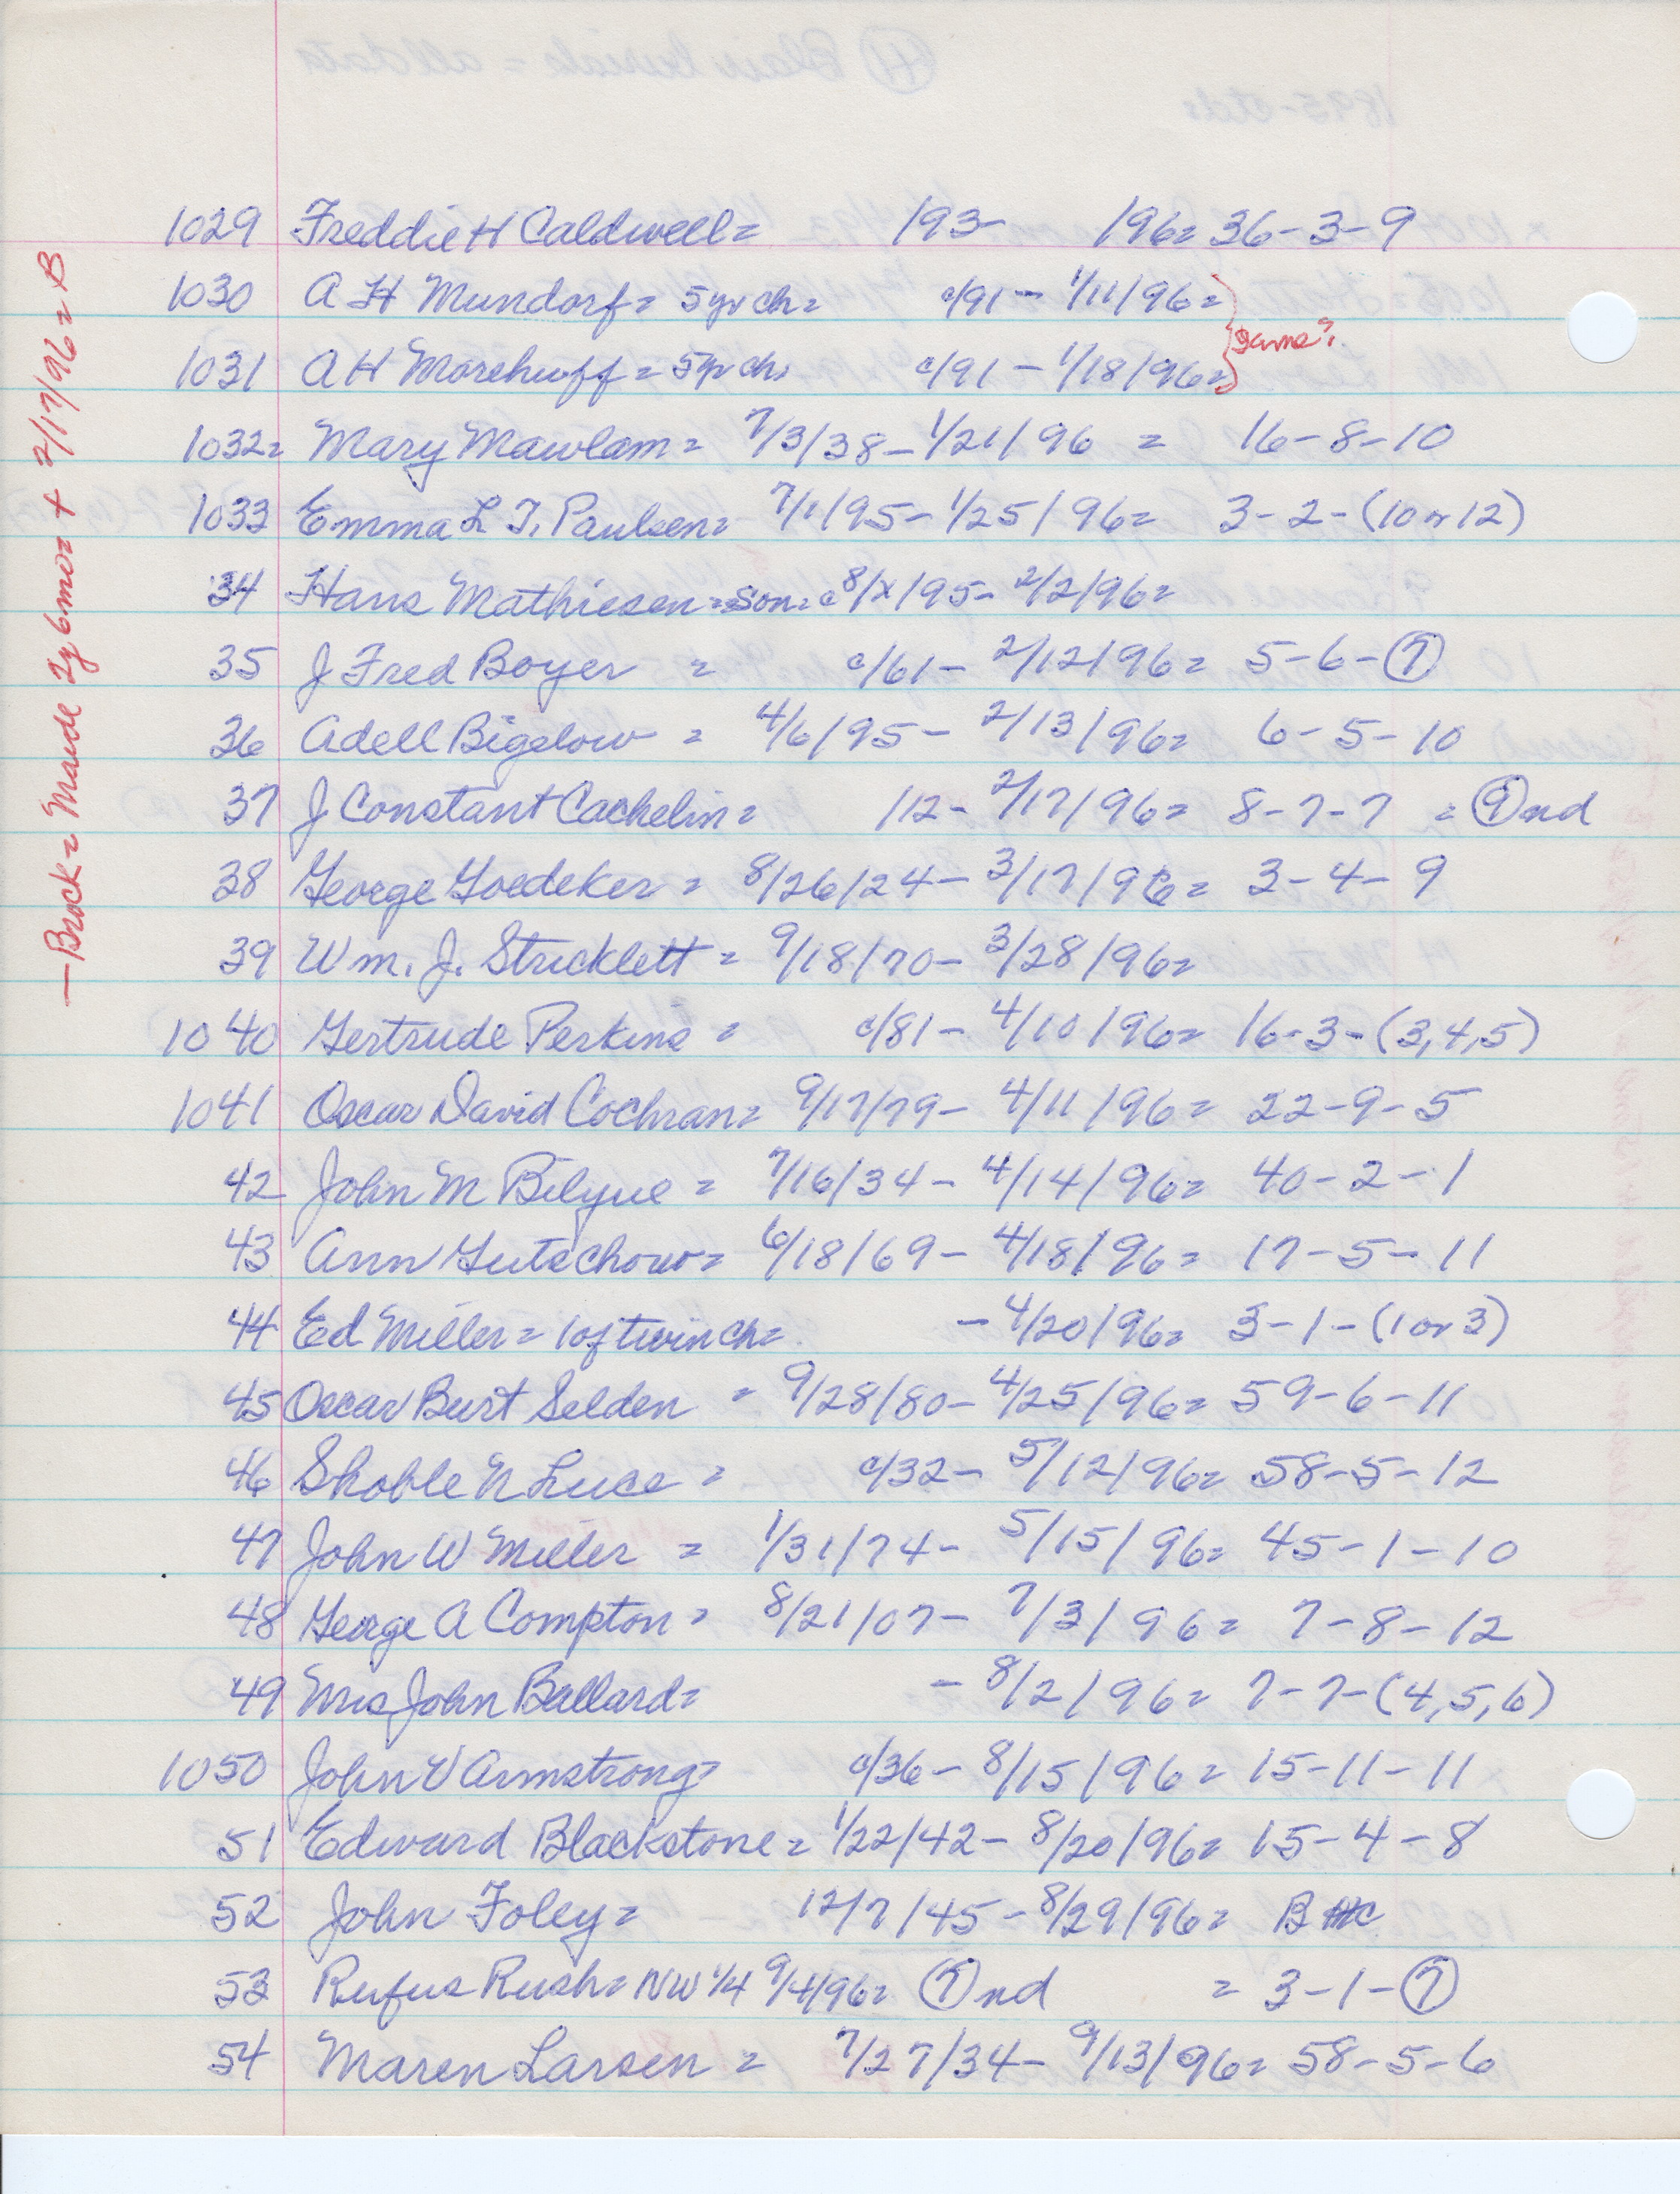 1029 Freddie H Caldwell = /93- /96= 36-3-9
1030 A H Mundorf = 5yr ch = c/91 - 1/11/96=
same?
1031 A H Morehuoff = 5yr ch, c/91 - 1/18/96=
1032= Mary Mawlam = 7/3/38 - 1/21/96 = 16-8-10
1033 Emma L T. Paulsen= 7/1/95 - 1/25/96= 3-2-(10 or 12)
34 Hans Mathiesen = son = c 8/x/95 - 2/2/96=
35 J Fred Boyer = c/61 - 2/12/96= 5-6-?
36 Adell Bigelow = 4/6/95 - 2/13/96= 6-5-10
37 J Constant Cachelin = /12 - 2/17/96= 8-7-7 = ? nd
38 George Goedeker = 8/26/24 - 3/17/96= 3-4-9
39 Wm. J. Stricklett = 9/18/70 - 3/28/96=
1040 Gertrude Perkins = c/81 - 4/10/96= 16-3-(3,4,5)
1041 Oscar David Cochran= 9/17/79 - 4/11/96= 22-9-5
42 John M Bilyue = 7/16/34 - 4/14/96= 40-2-1
43 Ann Gutschow= 6/18/69 - 4/18/96= 17-5-11
44 Ed Miller = 1 of twin ch= - 4/20/96= 3-1-(1 or 3)
45 Oscar Burt Selden = 9/28/80 - 4/25/96= 59-6-11
46 Shoble N Luce = c/32 - 5/12/96= 58-5-12
47 John W Miller = 1/31/74 - 5/15/96= 45-1-10
48 George A Compton = 8/21/07 - 7/3/96= 7-8-12
49 Mrs John Ballard= - 8/2/96= 7-7-(4,5,6)
1050 John V Armstrong= c/36 - 8/15/96= 15-11-11
51 Edward Blackstone = 1/22/42 - 8/20/96= 15-4-8
52 John Foley = 12/7/45 - 8/29/96= B
53 Rufus Rush= NW 1/4 9/4/96= ? nd = 3-1-?
54 Maren Larsen = 7/27/34 - 9/13/96= 58-5-6
— Brock = Maude 2y 6mo= + 2/17/96 = B